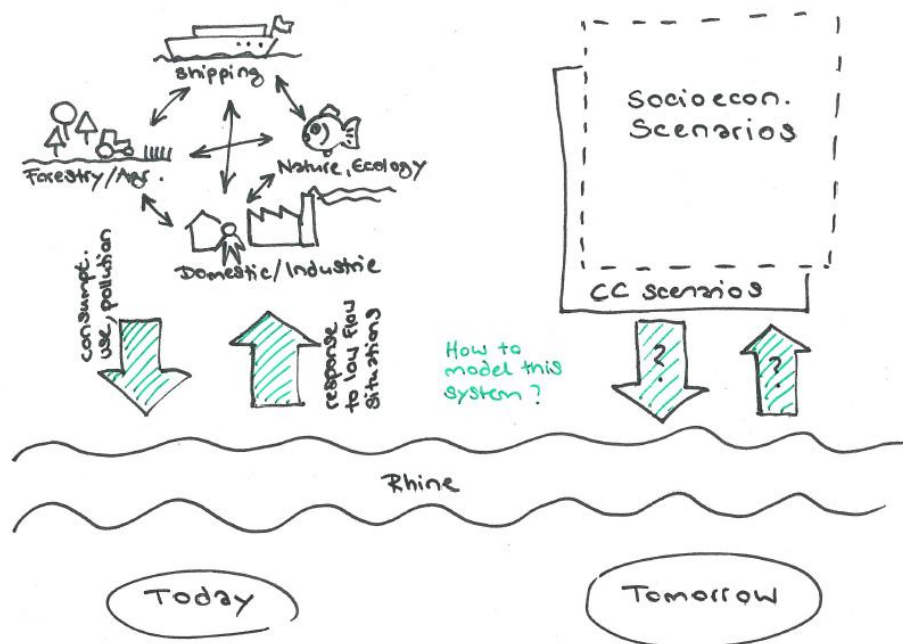 Shipping
Forestry/Agr.
Nature, Ecology
Domestic/Industrie
consumpt.
use, pollution
response
to low flow
situations
How to
model this
system?
Socioecon.
Scenarios
CC scenarios
?
?
Rhine
Today
Tomorrow